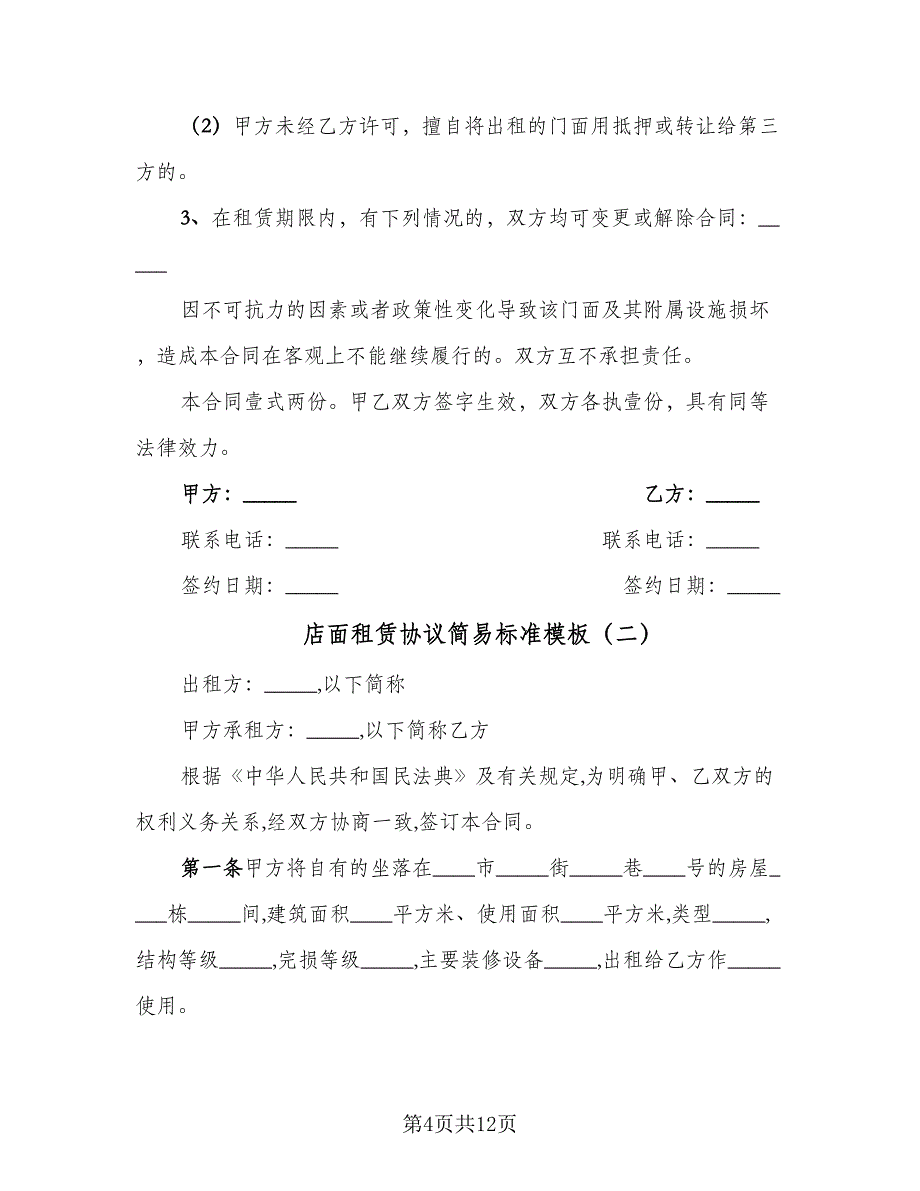 （2）甲方未经乙方许可，擅自将出租的门面用抵押或转让给第三
方的。
3、在租赁期限内，有下列情况的，双方均可变更或解除合同：__
___
因不可抗力的因素或者政策性变化导致该门面及其附属设施损坏
，造成本合同在客观上不能继续履行的。双方互不承担责任。
本合同壹式两份。甲乙双方签字生效，双方各执壹份，具有同等
法律效力。
甲方：_____ 乙方：_____
联系电话：_____ 联系电话：_____
签约日期：_____ 签约日期：_____
店面租赁协议简易标准模板（二）
出租方：_____,以下简称
甲方承租方：_____,以下简称乙方
根据《中华人民共和国民法典》及有关规定,为明确甲、乙双方的
权利义务关系,经双方协商一致,签订本合同。
第一条甲方将自有的坐落在____市_____街_____巷____号的房屋_
___栋_____间,建筑面积____平方米、使用面积____平方米,类型_____,
结构等级_____,完损等级_____,主要装修设备_____,出租给乙方作_____
使用。
第4页共12页